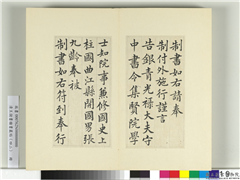 制書如右請奉
制付外施行謹言
告銀青光祿大夫守
中書令集賢院學
士知院事兼修國史上
柱國曲江縣開國男張
九齡奉被
制書如右符到奉行